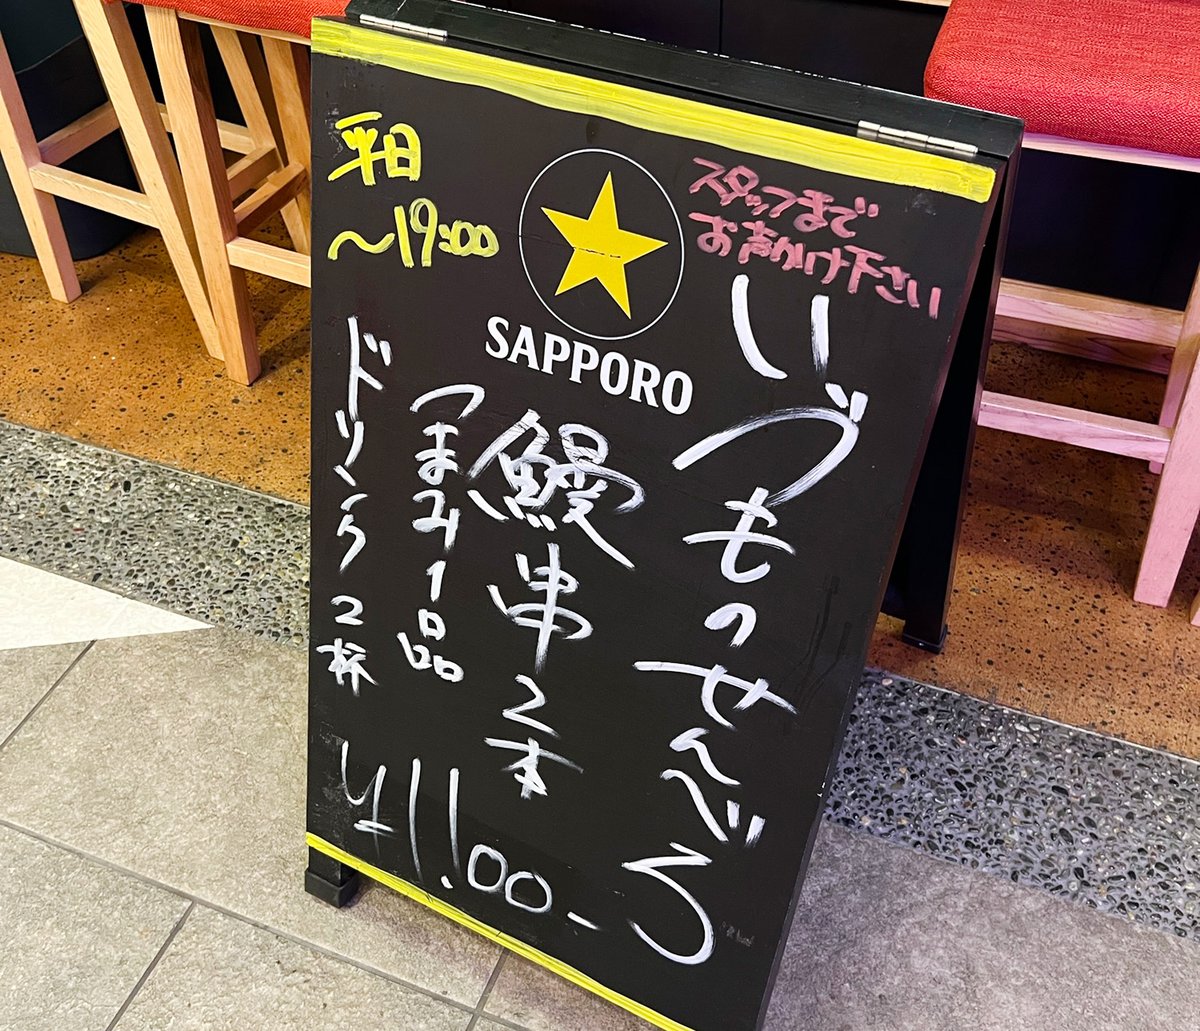 平日
~19:00
SAPPORO
スタッフまで
お声かけ下さい
いづものせんべろ
鰻串2本
つまみ1品
ドリンク2杯
¥1,100-